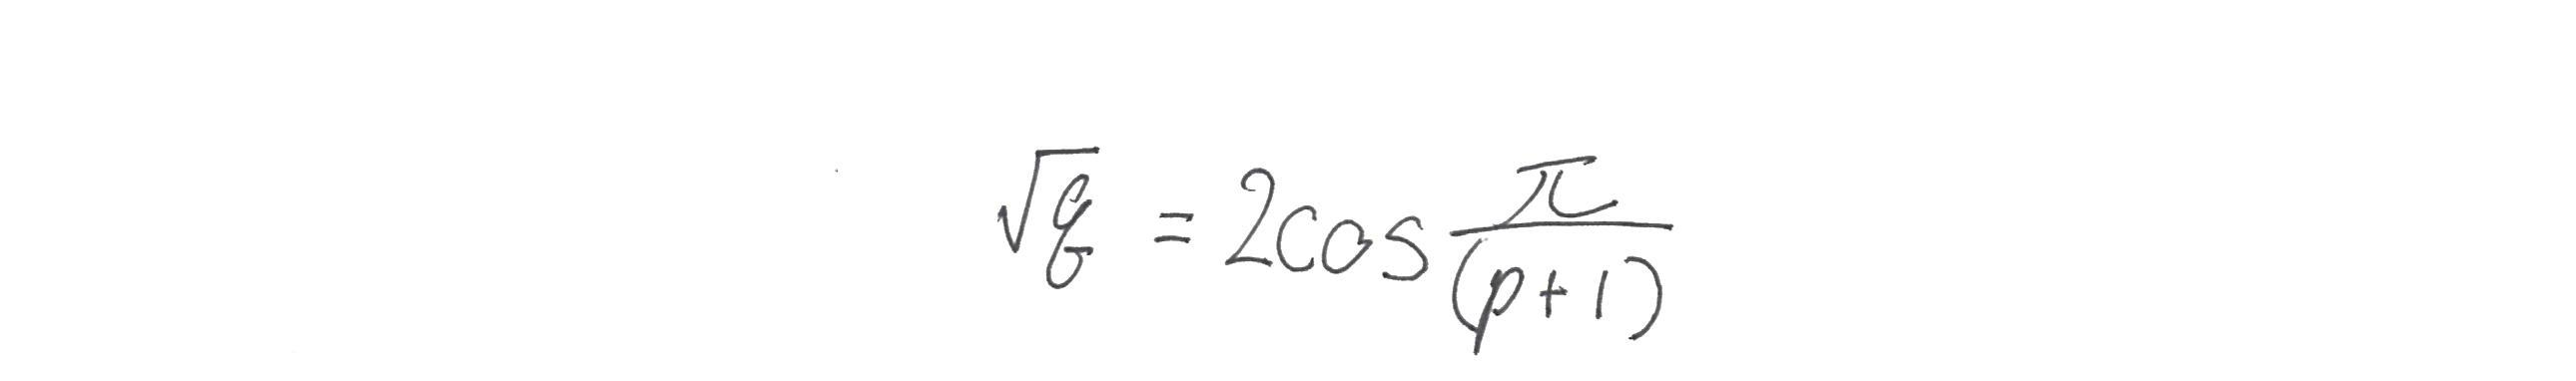 √q = 2cos π/(p+1)